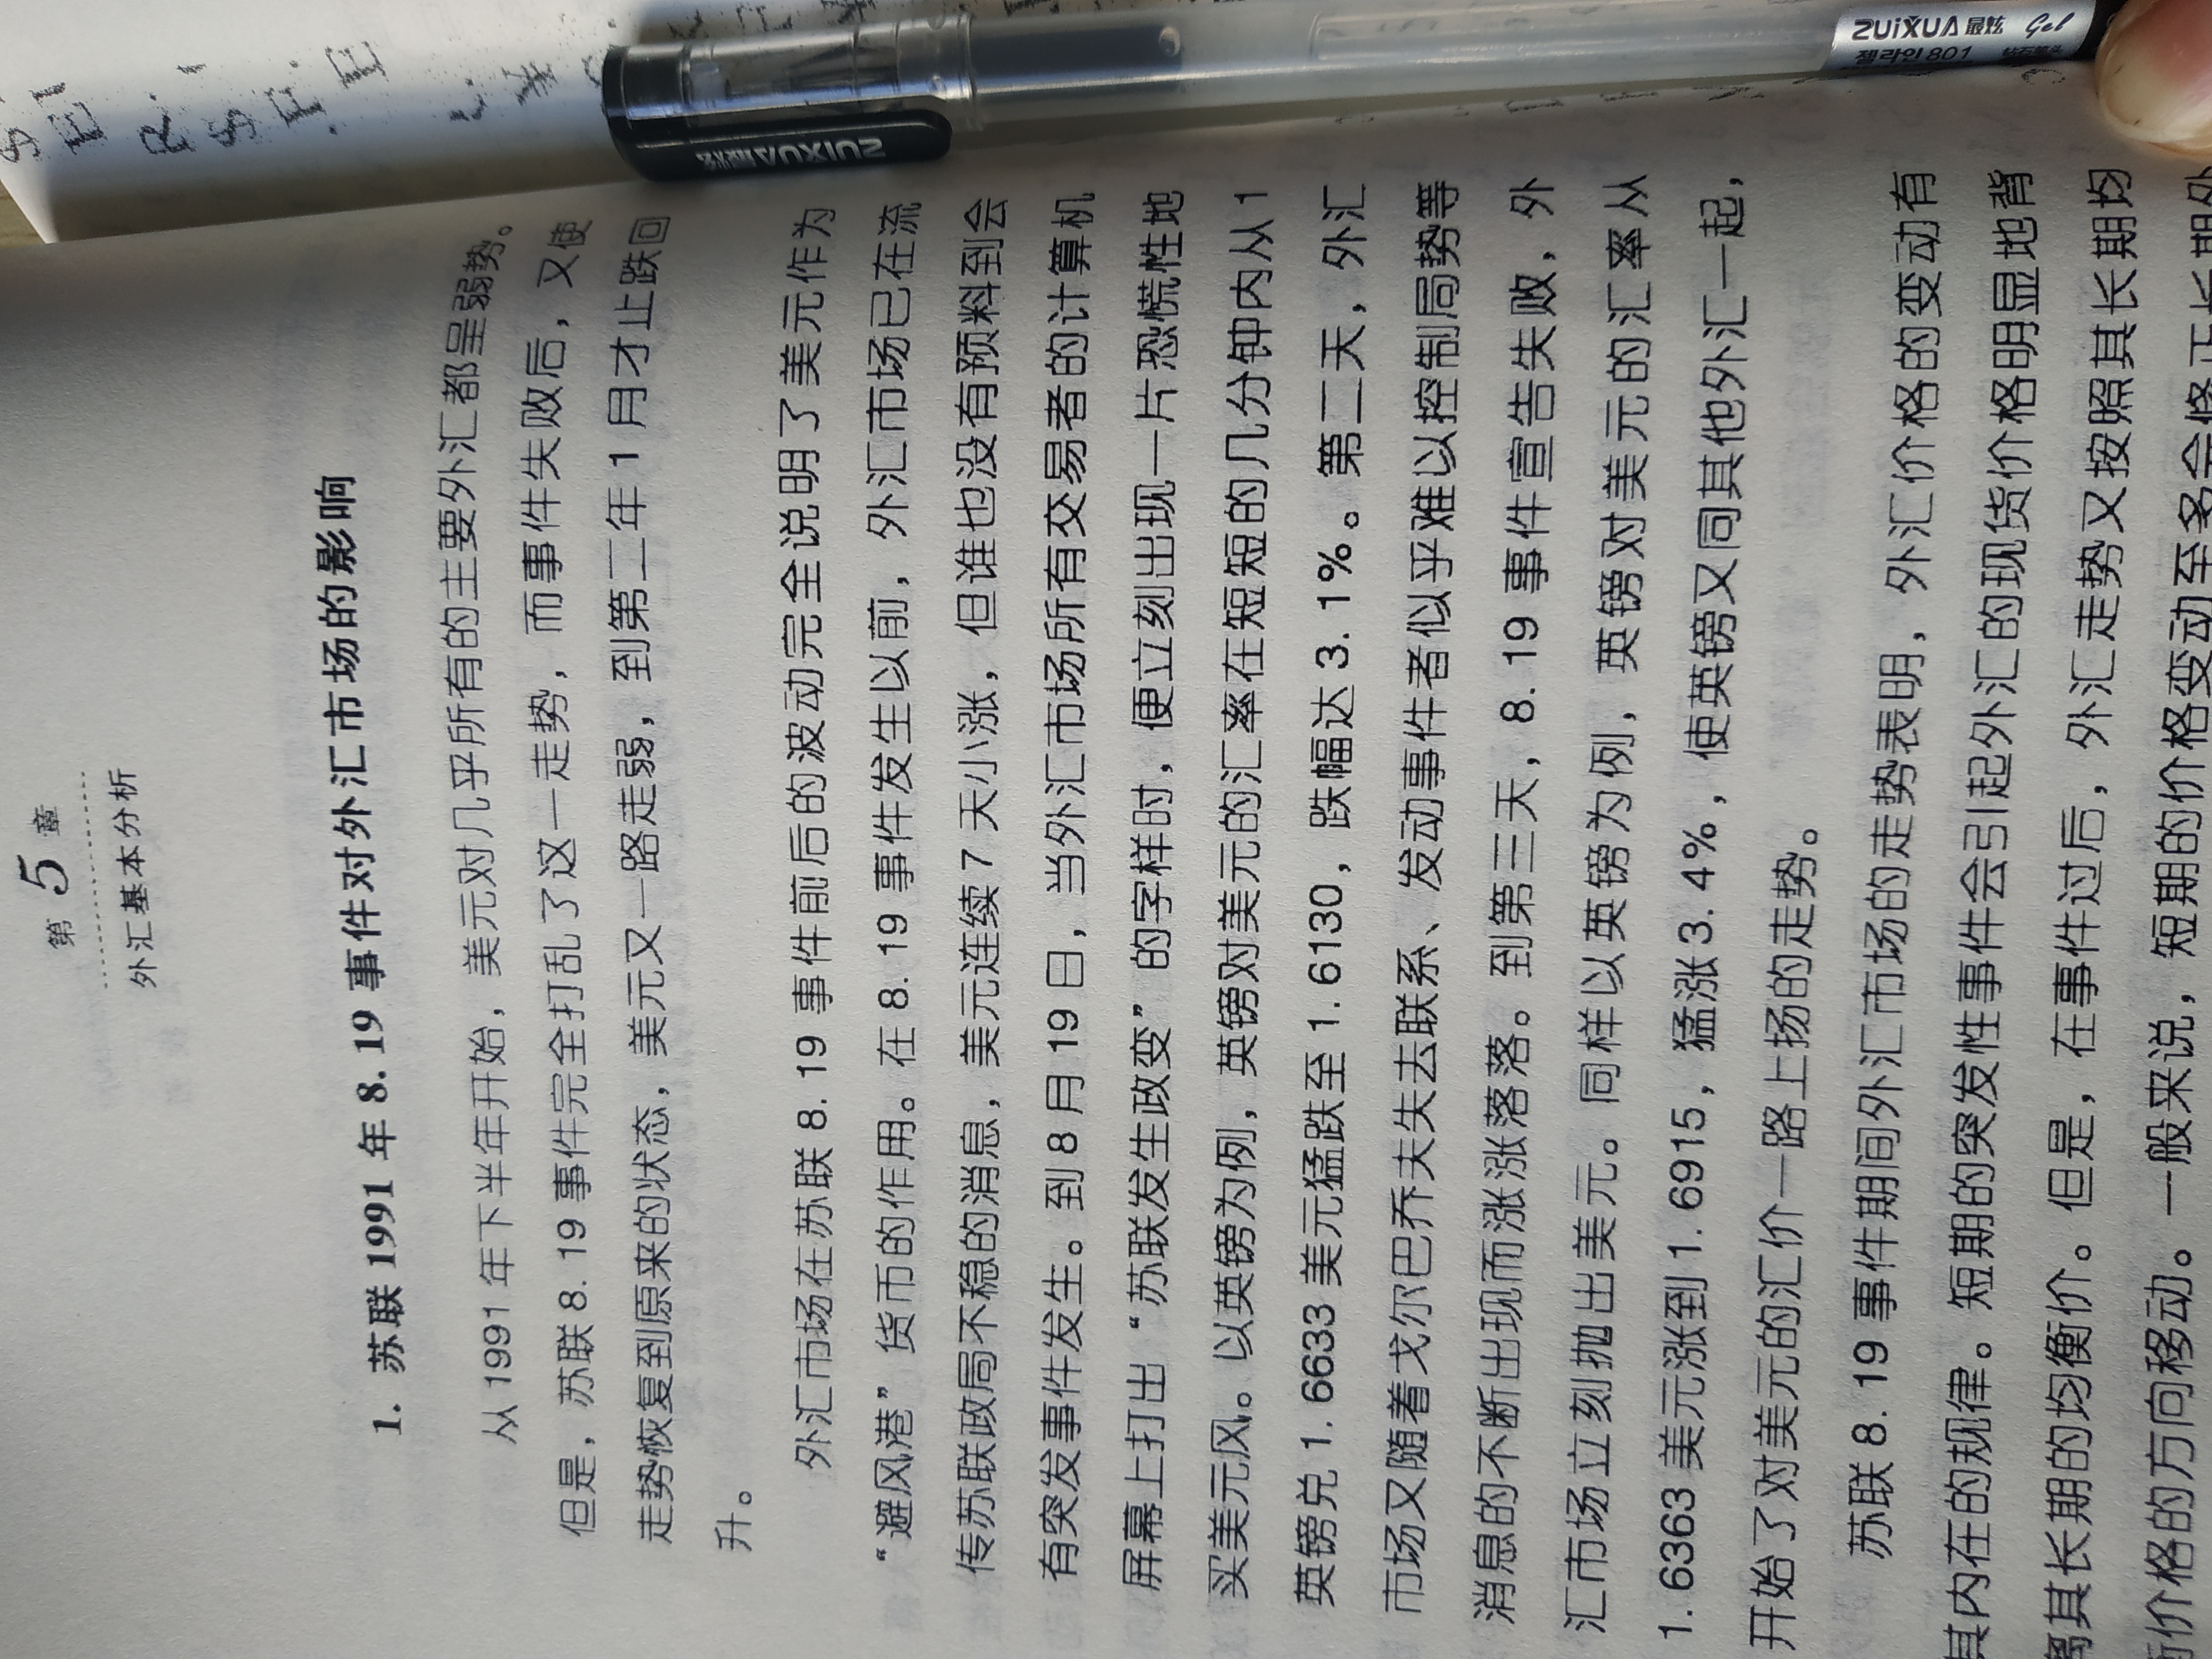 第5章
外汇基本分析
1. 苏联 1991 年 8.19 事件对外汇市场的影响
从 1991 年下半年开始，美元对几乎所有的主要外汇都呈弱势。
但是，苏联 8.19 事件完全打乱了这一走势，而事件失败后，又使
走势恢复到原来的状态，美元又一路走弱，到第二年 1 月才止跌回
升。
外汇市场在苏联 8.19 事件前后的波动完全说明了美元作为
“避风港”货币的作用。在 8.19 事件发生以前，外汇市场已在流
传苏联政局不稳的消息，美元连续 7 天小涨，但谁也没有预料到会
有突发事件发生。到 8 月 19 日，当外汇市场所有交易者的计算机
屏幕上打出“苏联发生政变”的字样时，便立刻出现一片恐慌性地
买美元风。以英镑为例，英镑对美元的汇率在短短的几分钟内从 1
英镑兑 1.6633 美元猛跌至 1.6130，跌幅达 3.1%。第二天，外汇
市场又随着戈尔巴乔夫失去联系、发动事件者似乎难以控制局势等
消息的不断出现而涨涨落落。到第三天，8.19 事件宣告失败，外
汇市场立刻抛出美元。同样以英镑为例，英镑对美元的汇率从
1.6363 美元涨到 1.6915，猛涨 3.4%，使英镑又同其他外汇一起，
开始了对美元的汇价一路上扬的走势。
苏联 8.19 事件期间外汇市场的走势表明，外汇价格的变动有
其内在的规律。短期的突发性事件会引起外汇的现货价格明显地背
离其长期的均衡价。但是，在事件过后，外汇走势又按照其长期均
衡价格的方向移动。一般来说，短期的价格变动至多会修正长期外
ZUiXUA 最炫 Gel
젤라인 801
ZUiXUA 最炫